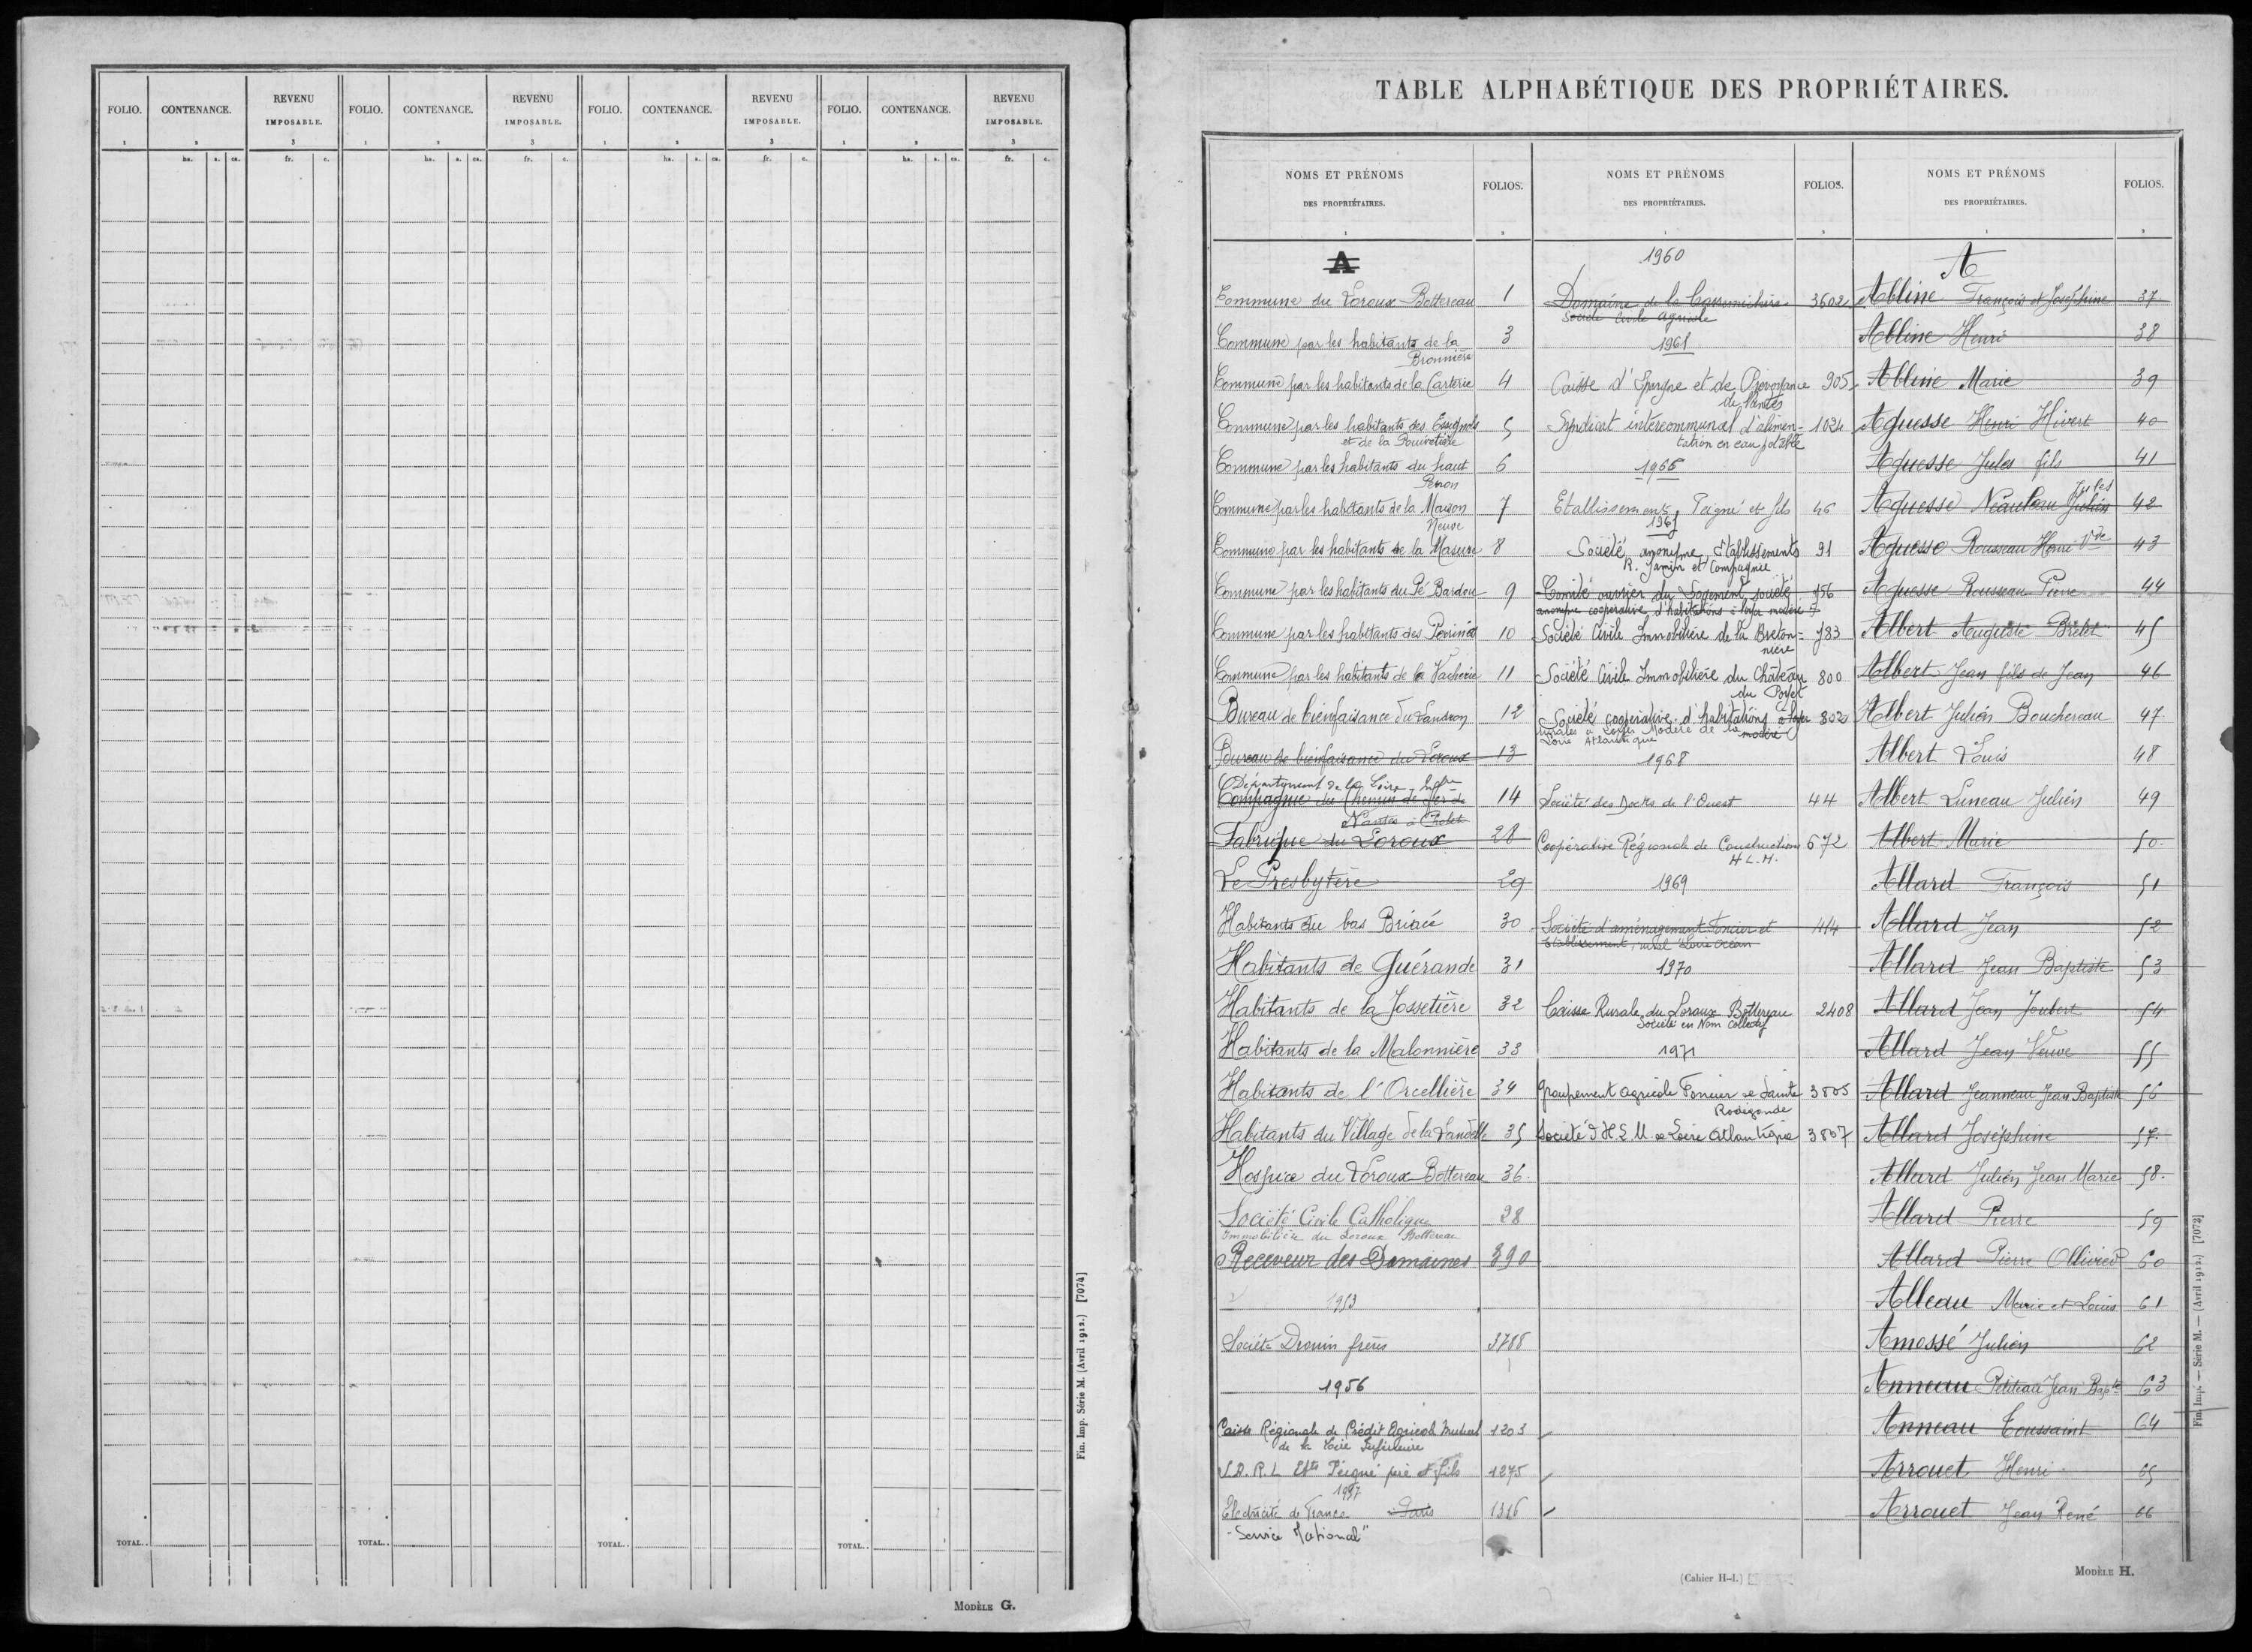 FOLIO. CONTENANCE. REVENU IMPOSABLE. FOLIO. CONTENANCE. REVENU IMPOSABLE. FOLIO. CONTENANCE. REVENU IMPOSABLE. FOLIO. CONTENANCE. REVENU IMPOSABLE.
1 2 3 1 2 3 1 2 3 1 2 3
ha. a. ca. fr. c. ha. a. ca. fr. c. ha. a. ca. fr. c. ha. a. ca. fr. c.
TOTAL.. TOTAL.. TOTAL.. TOTAL..
Fin. Imp. Série M. (Avril 1912.) [7074]
MODÈLE G.
TABLE ALPHABÉTIQUE DES PROPRIÉTAIRES.
NOMS ET PRÉNOMS
DES PROPRIÉTAIRES.
FOLIOS.
1 2
A
Commune du Loroux-Bottereau 1
Commune par les habitants de la 3
Bronnière
Commune par les habitants de la Carterie 4
Commune par les habitants des 5
et de la
Commune par les habitants du haut 6
Perron
Commune par les habitants de la Maison 7
Neuve
Commune par les habitants de la Masure 8
Commune par les habitants du Pé Bardou 9
Commune par les habitants des 10
Commune par les habitants de la Vacherie 11
Bureau de bienfaisance du Landreau 12
Bureau de bienfaisance du Loroux 13
Département de la Loire Infre
Compagnie du Chemin de fer de 14
Nantes à Cholet
Fabrique du Loroux 28
Le Presbytère 29
Habitants du bas Briacé 30
Habitants de Guérande 31
Habitants de la Jossetière 32
Habitants de la Malonnière 33
Habitants de l'Orcellière 34
Habitants du Village de la Landelle 35
Hospice du Loroux-Bottereau 36
Société Civile Catholique 28
Immobilière du Loroux Bottereau
Receveur des Domaines 390
1953
Société Drouin frères 3788
1956
Caisse Régionale de Crédit Agricole Mutuel 1203
de la Loire Inférieure
S.A.R.L Ets Peigné père et fils 1275
1957
Electricité de France Paris 1316
"Service National"
NOMS ET PRÉNOMS
DES PROPRIÉTAIRES.
FOLIOS.
1 2
1960
Domaine de la 3602
Société Civile Agricole
1961
Caisse d'Epargne et de Prévoyance 905
de Nantes
Syndicat intercommunal d'alimen- 1024
tation en eau potable
1966
Etablissements Peigné et fils 46
1967
Société anonyme Etablissements 91
R. Jamin et Compagnie
Comité ouvrier du Logement, société 756
anonyme coopérative d'habitations à loyer modéré
Société Civile Immobilière de la Breton- 783
nière
Société Civile Immobilière du Château 800
du
Société coopérative d'habitations à loyer 802
rurales à Loyer Modéré de la modéré
Loire Atlantique
1968
Société des Docks de l'Ouest 44
Coopérative Régionale de Construction 672
H L.M.
1969
Société d'aménagement Foncier et 414
Etablissement rural Loire Océan
1970
Caisse Rurale du Loroux-Bottereau 2408
Société en Nom Collectif
1971
Groupement agricole Foncier de Sainte 3805
Radegonde
Société d'H.L.M de Loire Atlantique 3807
NOMS ET PRÉNOMS
DES PROPRIÉTAIRES.
FOLIOS.
1 2
A
Abline François et Joséphine 37
Abline Henri 38
Abline Marie 39
Aguesse Henri Hivert 40
Aguesse Jules fils 41
Jules
Aguesse Neauleau Julien 42
Aguesse Rousseau Henri Vve 43
Aguesse Rousseau Pierre 44
Albert Auguste Brelet 45
Albert Jean fils de Jean 46
Albert Julien Bouchereau 47
Albert Louis 48
Albert Luneau Julien 49
Albert Marie 50
Allard François 51
Allard Jean 52
Allard Jean Baptiste 53
Allard Jean Joubert 54
Allard Jean Veuve 55
Allard Jeanneau Jean Baptiste 56
Allard Joséphine 57
Allard Julien Jean Marie 58
Allard Pierre 59
Allard Pierre Ollivier 60
Alleau Marie et Louis 61
Amossé Julien 62
Anneau Petiteau Jean Bapte 63
Anneau Toussaint 64
Arrouet Henri 65
Arrouet Jean René 66
Fin. Imp. — Série M. — (Avril 1912.) [7073]
(Cahier H-1.)
MODÈLE H.